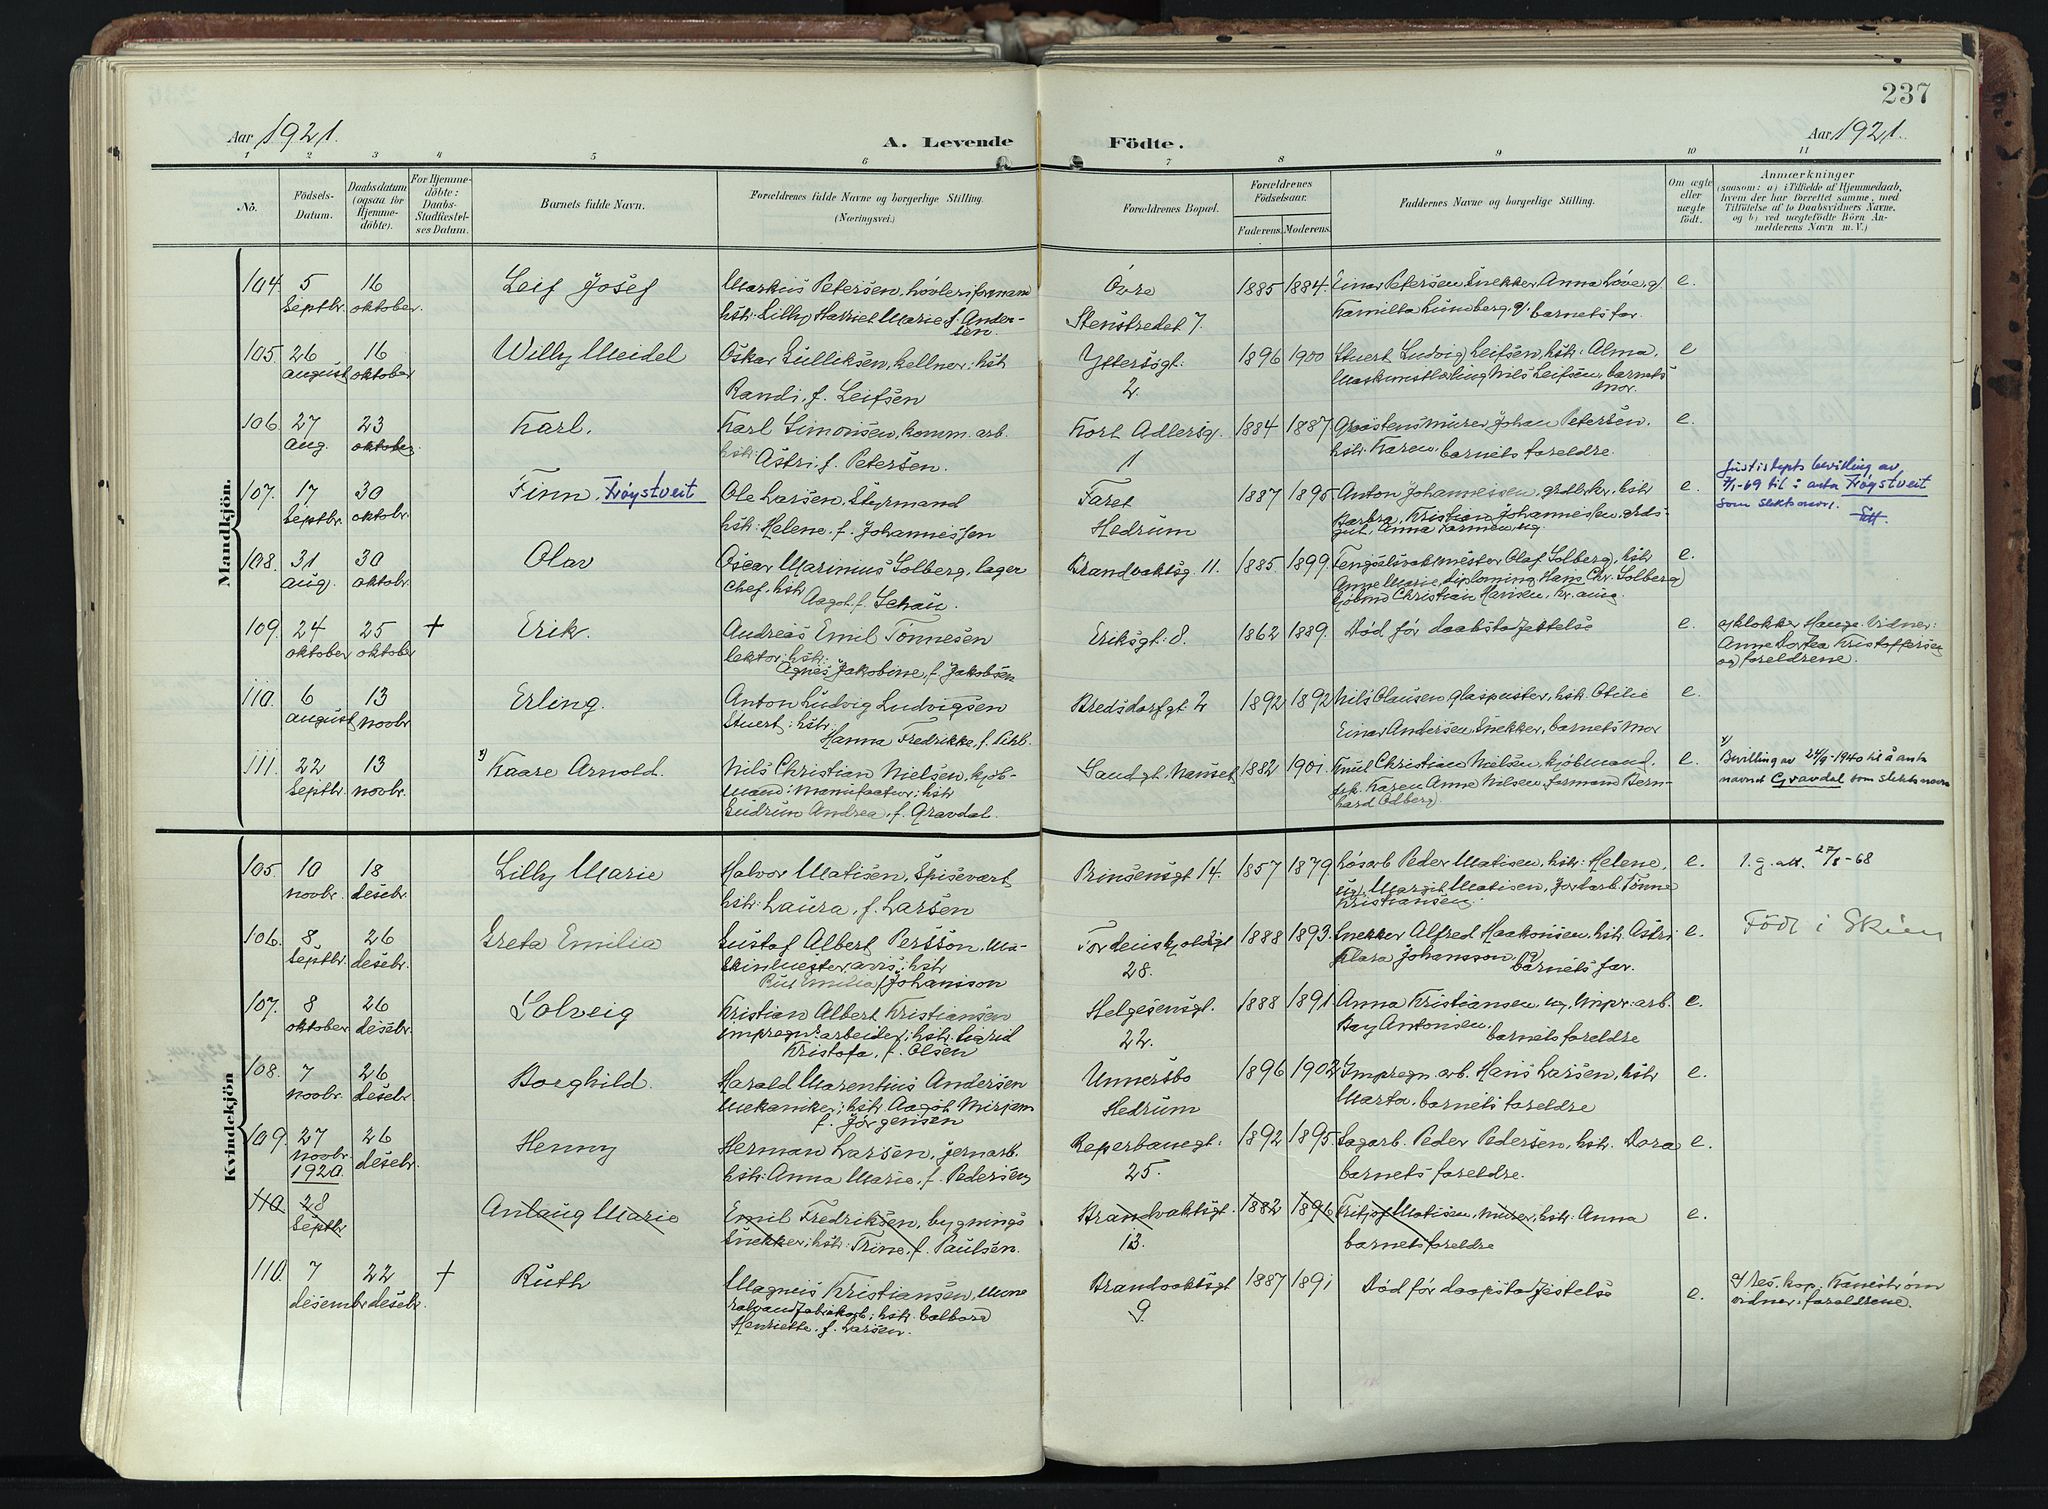 237
Aar 1921. A. Levende Födte. Aar 1921.
1 2 3 4 5 6 7 8 9 10 11
No. Födsels-Datum. Daabsdatum (ogsaa for Hjemmedöbte). For Hjemmedöbte: Daabs-Stadfæstelses Datum. Barnets fulde Navn. Forældrenes fulde Navne og borgerlige Stilling. (Næringsvei.) Forældrenes Bopæl. Forældrenes Födselsaar. Faderens. Moderens. Faddernes Navne og borgerlige Stilling. Om ægte eller uægte födt. Anmærkninger (saasom: a) i Tilfælde af Hjemmedaab, hvem der har forrettet samme, med Tilföielse af to Daabsvidners Navne, og b) ved uægtefödte Börn Anmelderens Navn m. V.)
Mandkjön.
104. 5 16 Leif Josef Markus Petersen, høvleriformand Øvre 1885 1884. Einar Petersen Snekker, Anna Løverg e.
Septbr. oktober. hstr. Lilly Harriet Marie f. Andersen. Stenstredet 7. Kamilla Lundberg og barnets far.
105. 26 16 Willy Meidel Oskar Gulliksen, kellner, hstr Yttersøgt. 1896 1900 Stuert Ludvig Leifsen, hstr: Alma, e
august oktober Randi, f. Leifsen 2. Maskinistlærling Nils Leifsen, barnets mor.
106. 27 23 Karl. Karl Simonsen, komm. arb. Kort Adlersg. 1884 1887 Graastensmurer Johan Petersen, e.
aug. oktober hstr. Astri, f. Petersen. 1 hstr. Karen, barnets foreldre.
107. 17 30 Finn, Frøystveit Ole Larsen, Styrmand Faret 1887 1895 Anton Johannessen, grdbr., hstr e. Justisdepts bevilling av
Septbr. oktobr. hstr. Helene, f. Johannessen Hedrum Barbra, Kristian Johannessen, grds- 7/1-69 til å anta Frøystveit
gut, Anna ug. som slektsnavn.
108. 31 30 Olav Oscar Marinius Solberg, lager Brandvaktsg. 11. 1885. 1899. Fengselsvaktmester Olaf Solberg, hstr e.
aug. oktobr. chef, hstr Aagot, f. Schau. Anne Marie, diploming Hans Chr. Solberg
kjøbmd Christian Hansen, Kr. aning
109. 24 25 + Erik. Andreas Emil Tønnesen Eriksgt: 8. 1862 1889. Død før daabstadfestelse e. av klokker Hauge. Vidner:
oktober oktober lektor: hstr: Agnes Jakobine, f. Jakobsen Anne Dortea Kristoffersen
og foreldrene.
110. 6 13 Erling. Anton Ludvig Ludvigsen Bredsdorfgt. 2 1892 1892 Nils Olausen glaspuster, hstr. Otilie e.
august novbr. Stuert: hstr: Hanna Fredrikke, f. Pihl. Einar Andersen Snekker, barnets mor
111. 22 13 x) Kaare Arnold. Nils Christian Nielsen, kjøb- Sandgt. Nanset 1882 1901. Emil Christian Nielsen, kjøbmand, e. x) Bevilling av 24/9-1940 til å anta
Septbr. novbr. mand: Manufactur: hstr Karen Anne Nilsen, formand Bern- navnet Gravdal som slektsnavn
Gudrun Andrea, f. Gravdal. hard Odberg.
Kvindekjön
105. 10 18 Lilly Marie Halvor Matisen, Spisevært Prinsensgt 14. 1857 1879. Løsarb Peder Matisen, hstr: Helene, e. 1.g.att. 27/8-68
novbr. desebr. hstr: Laura, f. Larsen ug. Margit Matisen, Jorbarb. Tønne Kristiansen.
106. 8 26 Greta Emilia Gustaf Albert Persson, ma- Tordenskjoldsgt 1888 1893. Snekker Alfred Haakonsen, hstr. Astri e. Födt i Skien
Septbr. desebr. skinmester, avis: hstr 28. Klara Johansson og barnets far.
Emilia f Johansson
107. 8 26 Solveig Kristian Albert Kristiansen Helgesensgt. 1888 1891. Anna Kristiansen ug, impr: arb. e.
oktober desebr. impregn: arbeider: hstr. Sigrid 22. Bay Antonisen. barnets foreldre
Kristofa, f. Olsen
108. 7 26 Borghild. Harald Marentius Andersen Unnersbo 1896 1902 Impregn. arb. Hans Larsen, hstr e.
novbr. desebr. mekaniker: hstr. Aagot Mirjam Hedrum Marta, barnets foreldre
f. Jørgensen
109. 27 26 Henny Herman Larsen, jernarb. Reperbanegt. 1892 1895. Sagarb. Peder Pedersen, hstr. Dora e.
novbr. 1920. desebr. hstr: Anna Marie, f. Pedersen 25. barnets foreldre.
110 28 Anlaug Marie Emil Fredriksen, bygnings Brandvaktsgt. 1882 1896 Fritjof Matisen, murer, hstr: Anna e.
Septbr. Snekker: hstr: Trine, f. Paulsen. 13. barnets foreldre
110. 7 22 + Ruth Magnus Kristiansen, Brandvaktsgt 1887 1891 Død før daapstadfestelse e. av res. kap. Kanestrøm
desembr desebr. hstr. Valbord 9. vidner: foreldrene.
Henriette, f. Larsen.